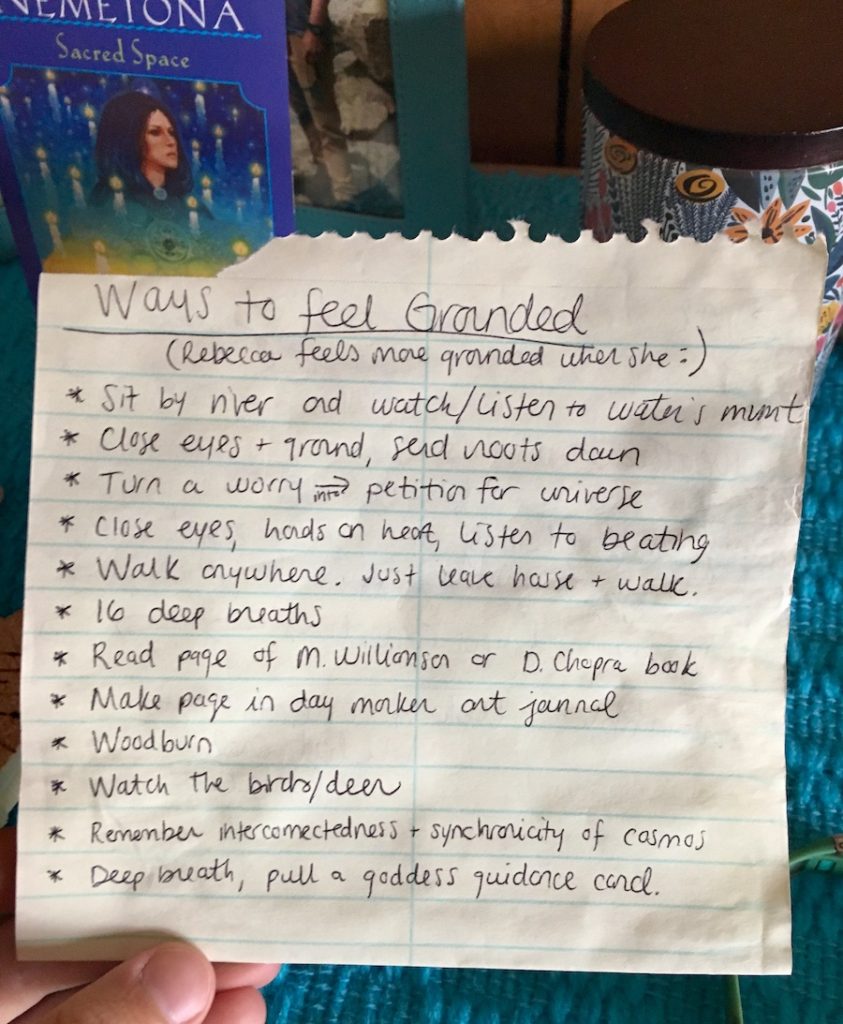 NEMETONA
Sacred Space
Ways to feel Grounded
(Rebecca feels more grounded when she:)
* Sit by river and watch/listen to water's mvmt
* Close eyes + ground, send roots down
* Turn a worry into → petition for universe
* Close eyes, hands on heart, listen to beating
* Walk anywhere. Just leave house + walk.
* 16 deep breaths
* Read page of M. Williamson or D. Chopra book
* Make page in day marker art journal
* Woodburn
* Watch the birds/deer
* Remember interconnectedness + synchronicity of cosmos
* Deep breath, pull a goddess guidance card.